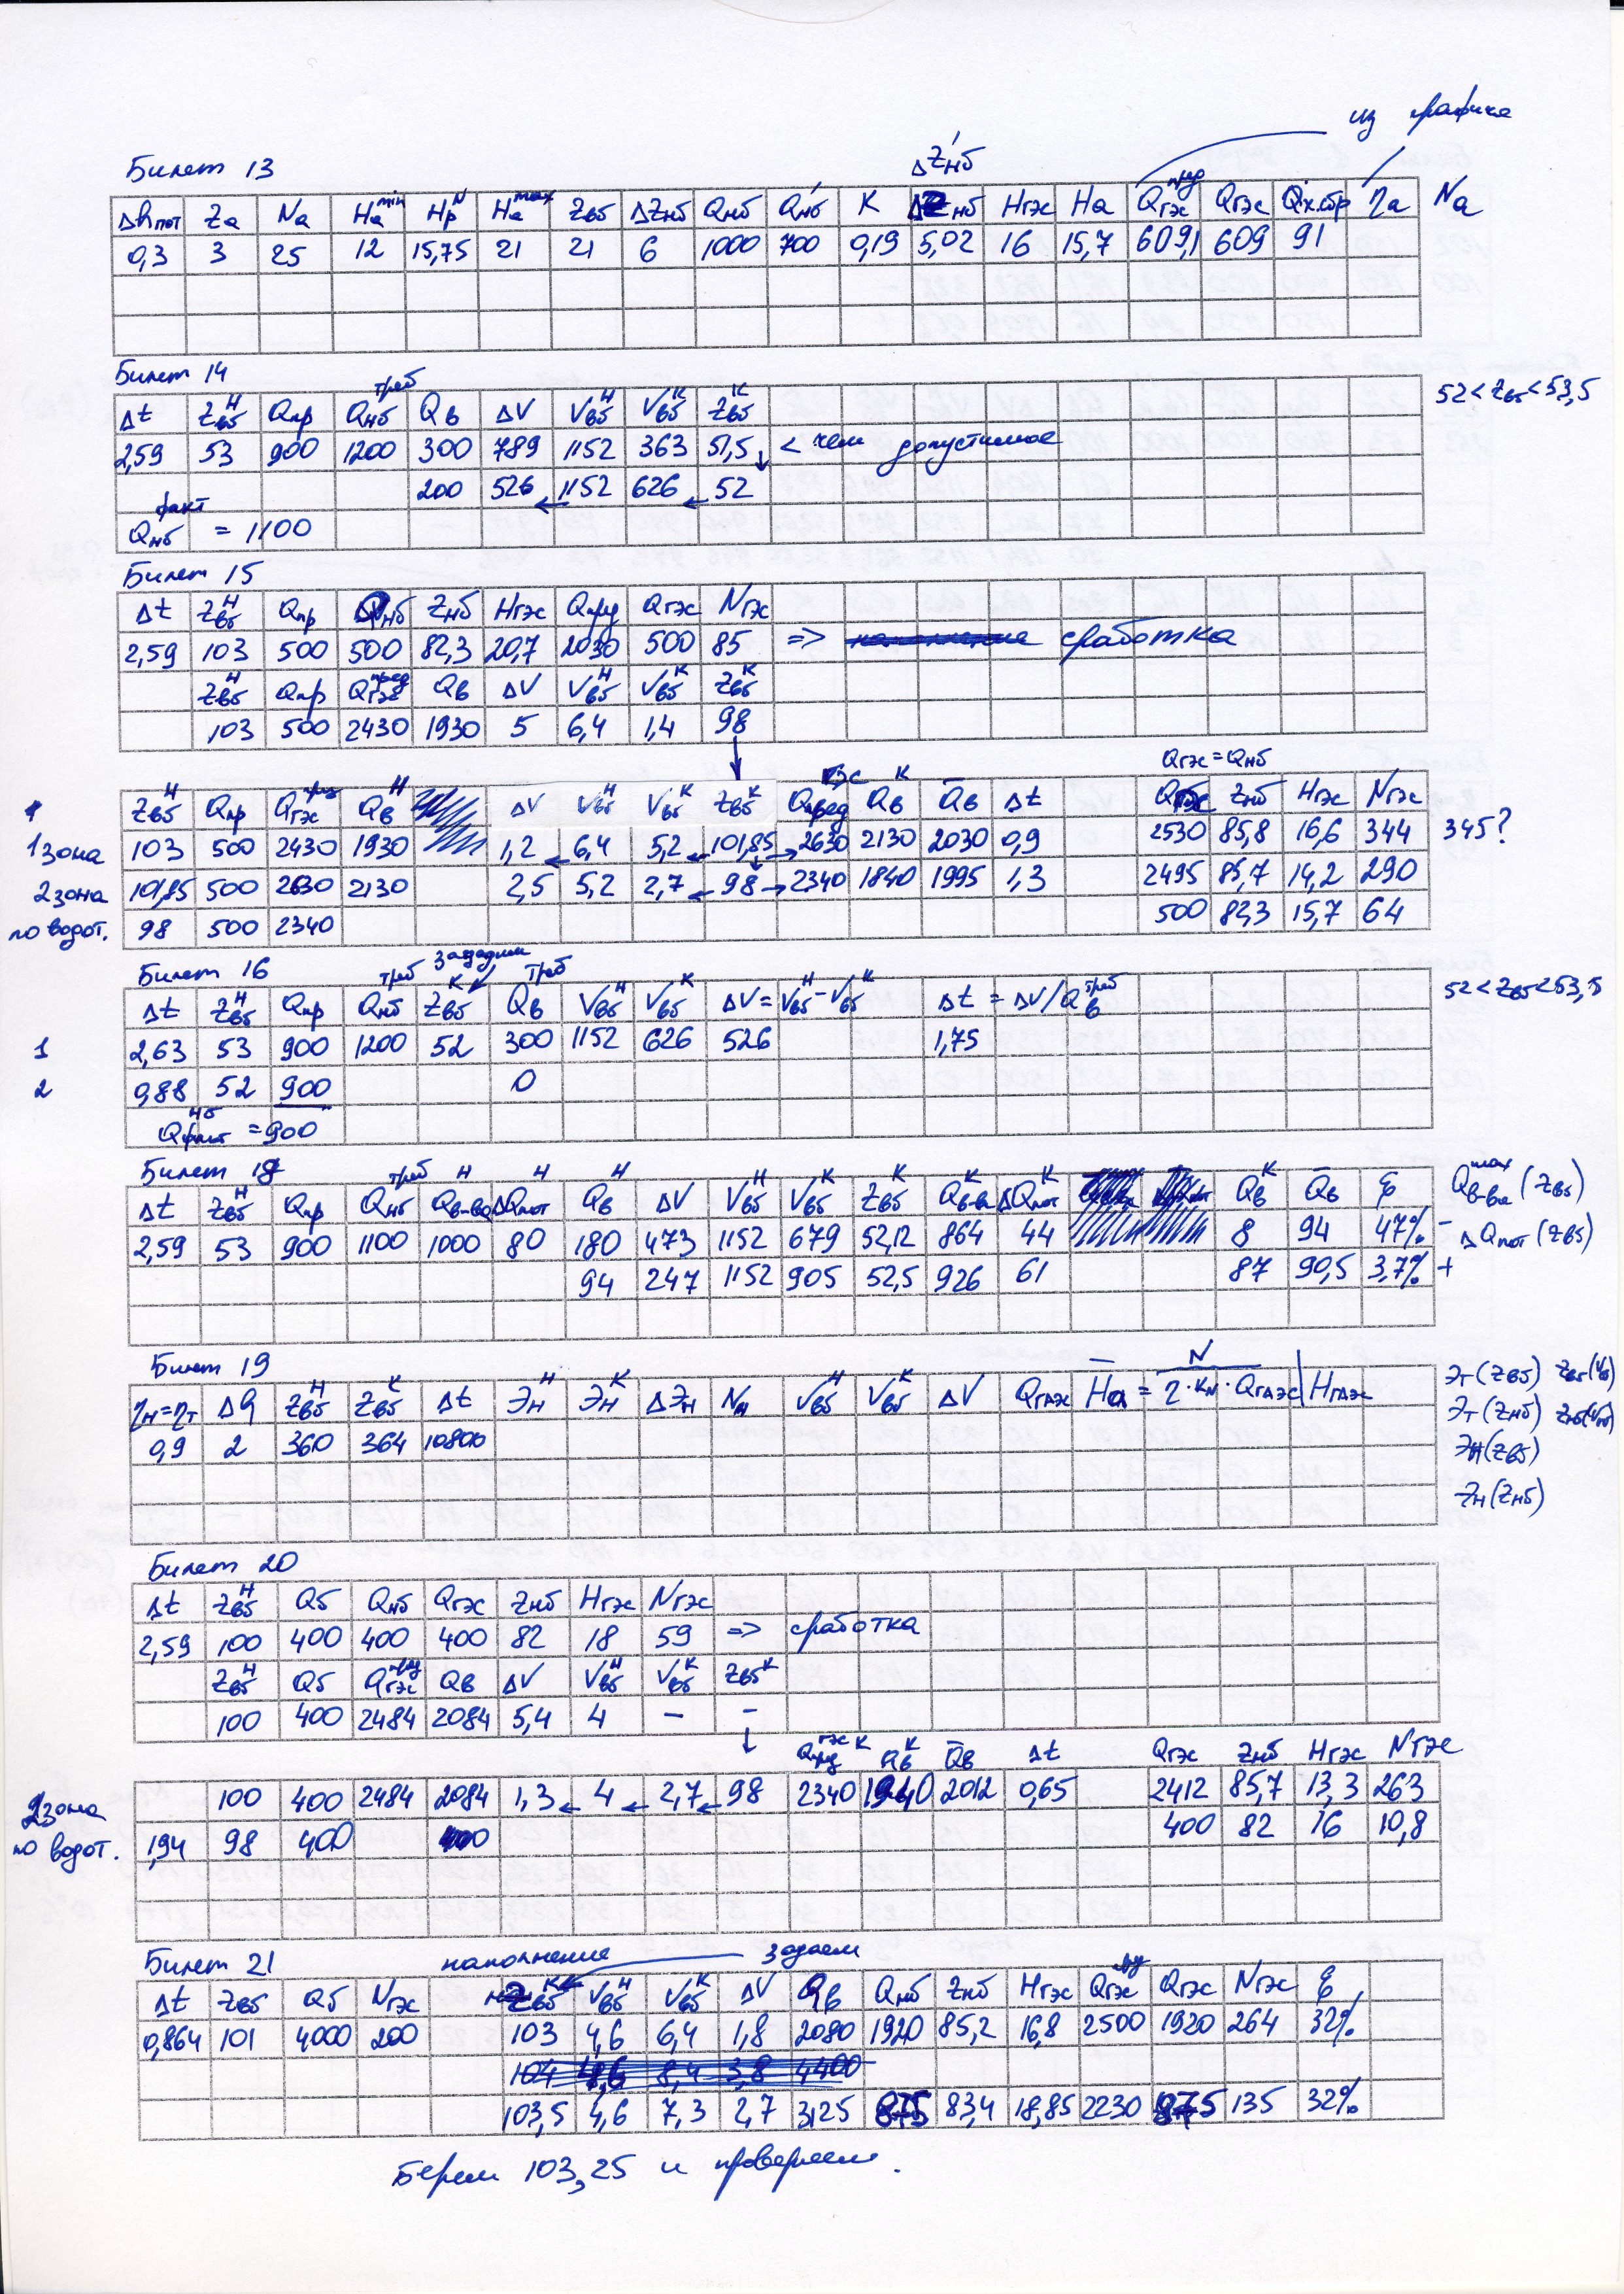 из графика
Билет 13
ΔZ'нб
Δhпот Zа Nа Hаᵐⁱⁿ Hрᴺ Hаᵐᵃˣ Zвб ΔZнб Qнб Q'нб K нб Hгэс Hа Qгэсᵖʳᵉᵈ Qгэс Qх.сбр ηа Nа
0,3 3 25 12 15,75 21 21 6 1000 700 0,19 5,02 16 15,7 609,1 609 91
Билет 14
Δt Zвбᴴ Qпр Qнбᵗʳᵉᵇ Qв ΔV Vвбᴴ Vвбᴷ Zвбᴷ 52 < Zвб < 53,5
2,59 53 900 1200 300 789 1152 363 51,5 ↓ < чем допустимое
200 526 ← 1152 626 ← 52
Qнбфакт = 1100
Билет 15
Δt Zвбᴴ Qпр Qнб Zнб Hгэс Qпред Qгэс Nгэс
2,59 103 500 500 82,3 20,7 2030 500 85 => сработка
Zвбᴴ Qпр Qгэспред Qв ΔV Vвбᴴ Vвбᴷ Zвбᴷ
103 500 2430 1930 5 6,4 1,4 98
Qгэс = Qнб
Zвбᴴ Qпр Qгэспред Qвᴴ ΔV Vвбᴴ Vвбᴷ Zвбᴷ Qпредгэс Qвᴷ Q̄в Δt Qгэс Zнб Hгэс Nгэс
1 зона 103 500 2430 1930 1,2 ← 6,4 5,2 ← 101,85 → 2630 2130 2030 0,9 2530 85,8 16,6 344 345?
2 зона 101,85 500 2630 2130 2,5 5,2 2,7 ← 98 → 2340 1840 1995 1,3 2495 85,7 14,2 290
по водот. 98 500 2340 500 82,3 15,7 64
Билет 16 зададим
Δt Zвбᴴ Qпр Qнбтреб Zвбᴷ Qвтреб Vвбᴴ Vвбᴷ ΔV = Vвбᴴ - Vвбᴷ Δt = ΔV/Qвтреб 52 < Zвб < 53,5
1 2,63 53 900 1200 52 300 1152 626 526 1,75
2 0,88 52 900 0
Qфактнб = 900
Билет 18
Δt Zвбᴴ Qпр Qнбтреб Qв-ваᴴ ΔQпотᴴ Qвᴴ ΔV Vвбᴴ Vвбᴷ Zвбᴷ Qв-ваᴷ ΔQпотᴷ Qвᴷ Q̄в ξ Qв-ваᵐᵃˣ (Zвб)
2,59 53 900 1100 1000 80 180 473 1152 679 52,12 864 44 8 94 47% - ΔQпот (Zвб)
94 247 1152 905 52,5 926 61 87 90,5 3,7% +
Билет 19
ηн=ηт Δq Zвбᴴ Zвбᴷ Δt Энᴴ Энᴷ ΔЭн Nн Vвбᴴ Vвбᴷ ΔV Qгаэс H̄а = N / η·kN·Qгаэс Hгаэс Эт (Zвб) Zвб(Vвб)
0,9 2 360 364 10800 Эт (Zнб) Zнб(Vнб)
Эн (Zвб)
Эн (Zнб)
Билет 20
Δt Zвбᴴ Qб Qнб Qгэс Zнб Hгэс Nгэс
2,59 100 400 400 400 82 18 59 => сработка
Zвбᴴ Qб Qгэспред Qв ΔV Vвбᴴ Vвбᴷ Zвбᴷ
100 400 2484 2084 5,4 4 – –
Qпредгэс ᴷ Qвᴷ Q̄в Δt Qгэс Zнб Hгэс Nгэс
2 зона 100 400 2484 2084 1,3 ← 4 ← 2,7 ← 98 2340 1940 2012 0,65 2412 85,7 13,3 263
по водот. 1,94 98 400 400 82 16 10,8
Билет 21 наполнение задаем
Δt Zвб Qб Nгэс Zвбᴷ Vвбᴴ Vвбᴷ ΔV Qв Qнб Zнб Hгэс Qгэспред Qгэс Nгэс ξ
0,864 101 4000 200 103 4,6 6,4 1,8 2080 1920 85,2 16,8 2500 1920 264 32%
104 4,6 8,4 3,8 4400
103,5 4,6 7,3 2,7 3125 875 83,4 18,85 2230 875 135 32%
Берем 103,25 и проверяем.